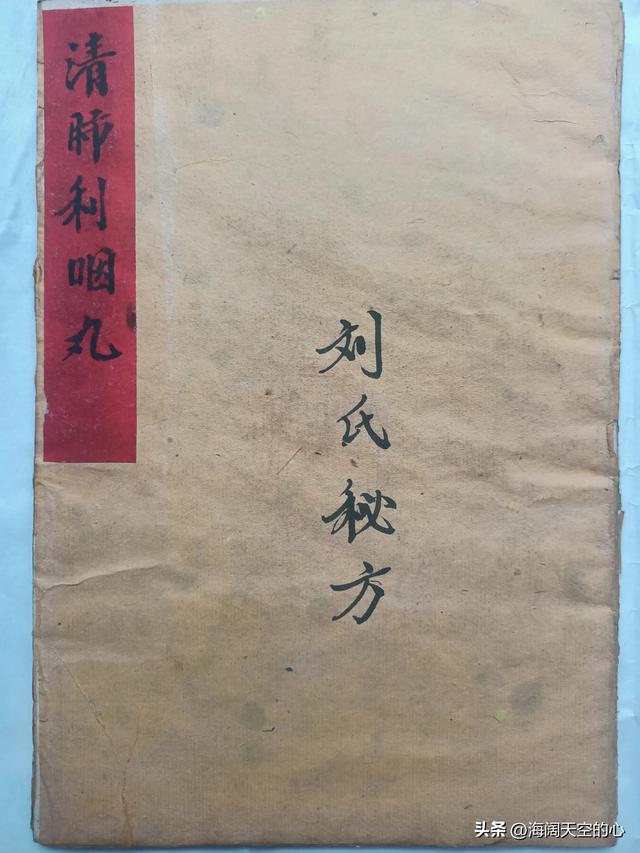 清肺利咽丸
刘氏秘方
头条 @海阔天空的心